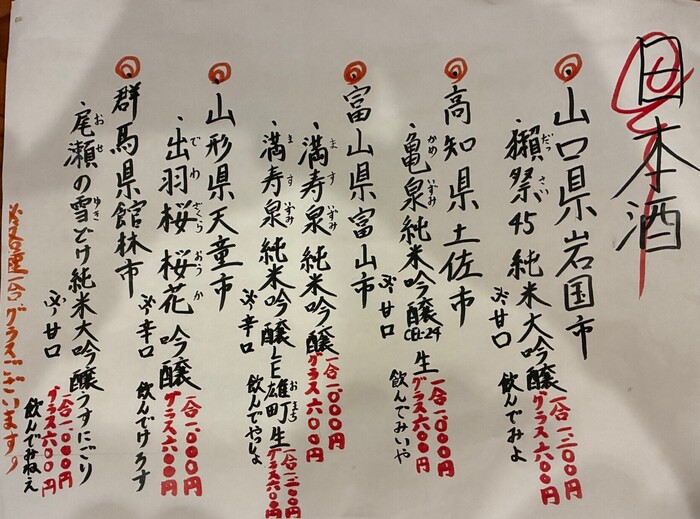 日本酒
山口県岩国市
・獺祭45 純米大吟醸 一合 一、二〇〇円
だっ さい
グラス六〇〇円
※甘口 飲んでみよ
高知県土佐市
・亀泉 純米吟醸 CEL24 生 一合 一、〇〇〇円
かめ いずみ
グラス六〇〇円
※甘口 飲んでみいや
富山県富山市
・満寿泉 純米吟醸 一合 一、〇〇〇円
ま す いずみ
グラス六〇〇円
・満寿泉 純米吟醸 LE雄町 生 一合 一、二〇〇円
ま す いずみ おまち
グラス六〇〇円
※辛口 飲んでやっしょ
山形県天童市
・出羽桜 桜花 吟醸 一合 一、〇〇〇円
で わ ざくら おう か
グラス六〇〇円
※辛口 飲んでけろず
群馬県館林市
・尾瀬の雪どけ 純米大吟醸 うすにごり 一合 一、〇〇〇円
お ぜ ゆき
グラス六〇〇円
※甘口 飲んでみねえ
※各種一合グラスございます